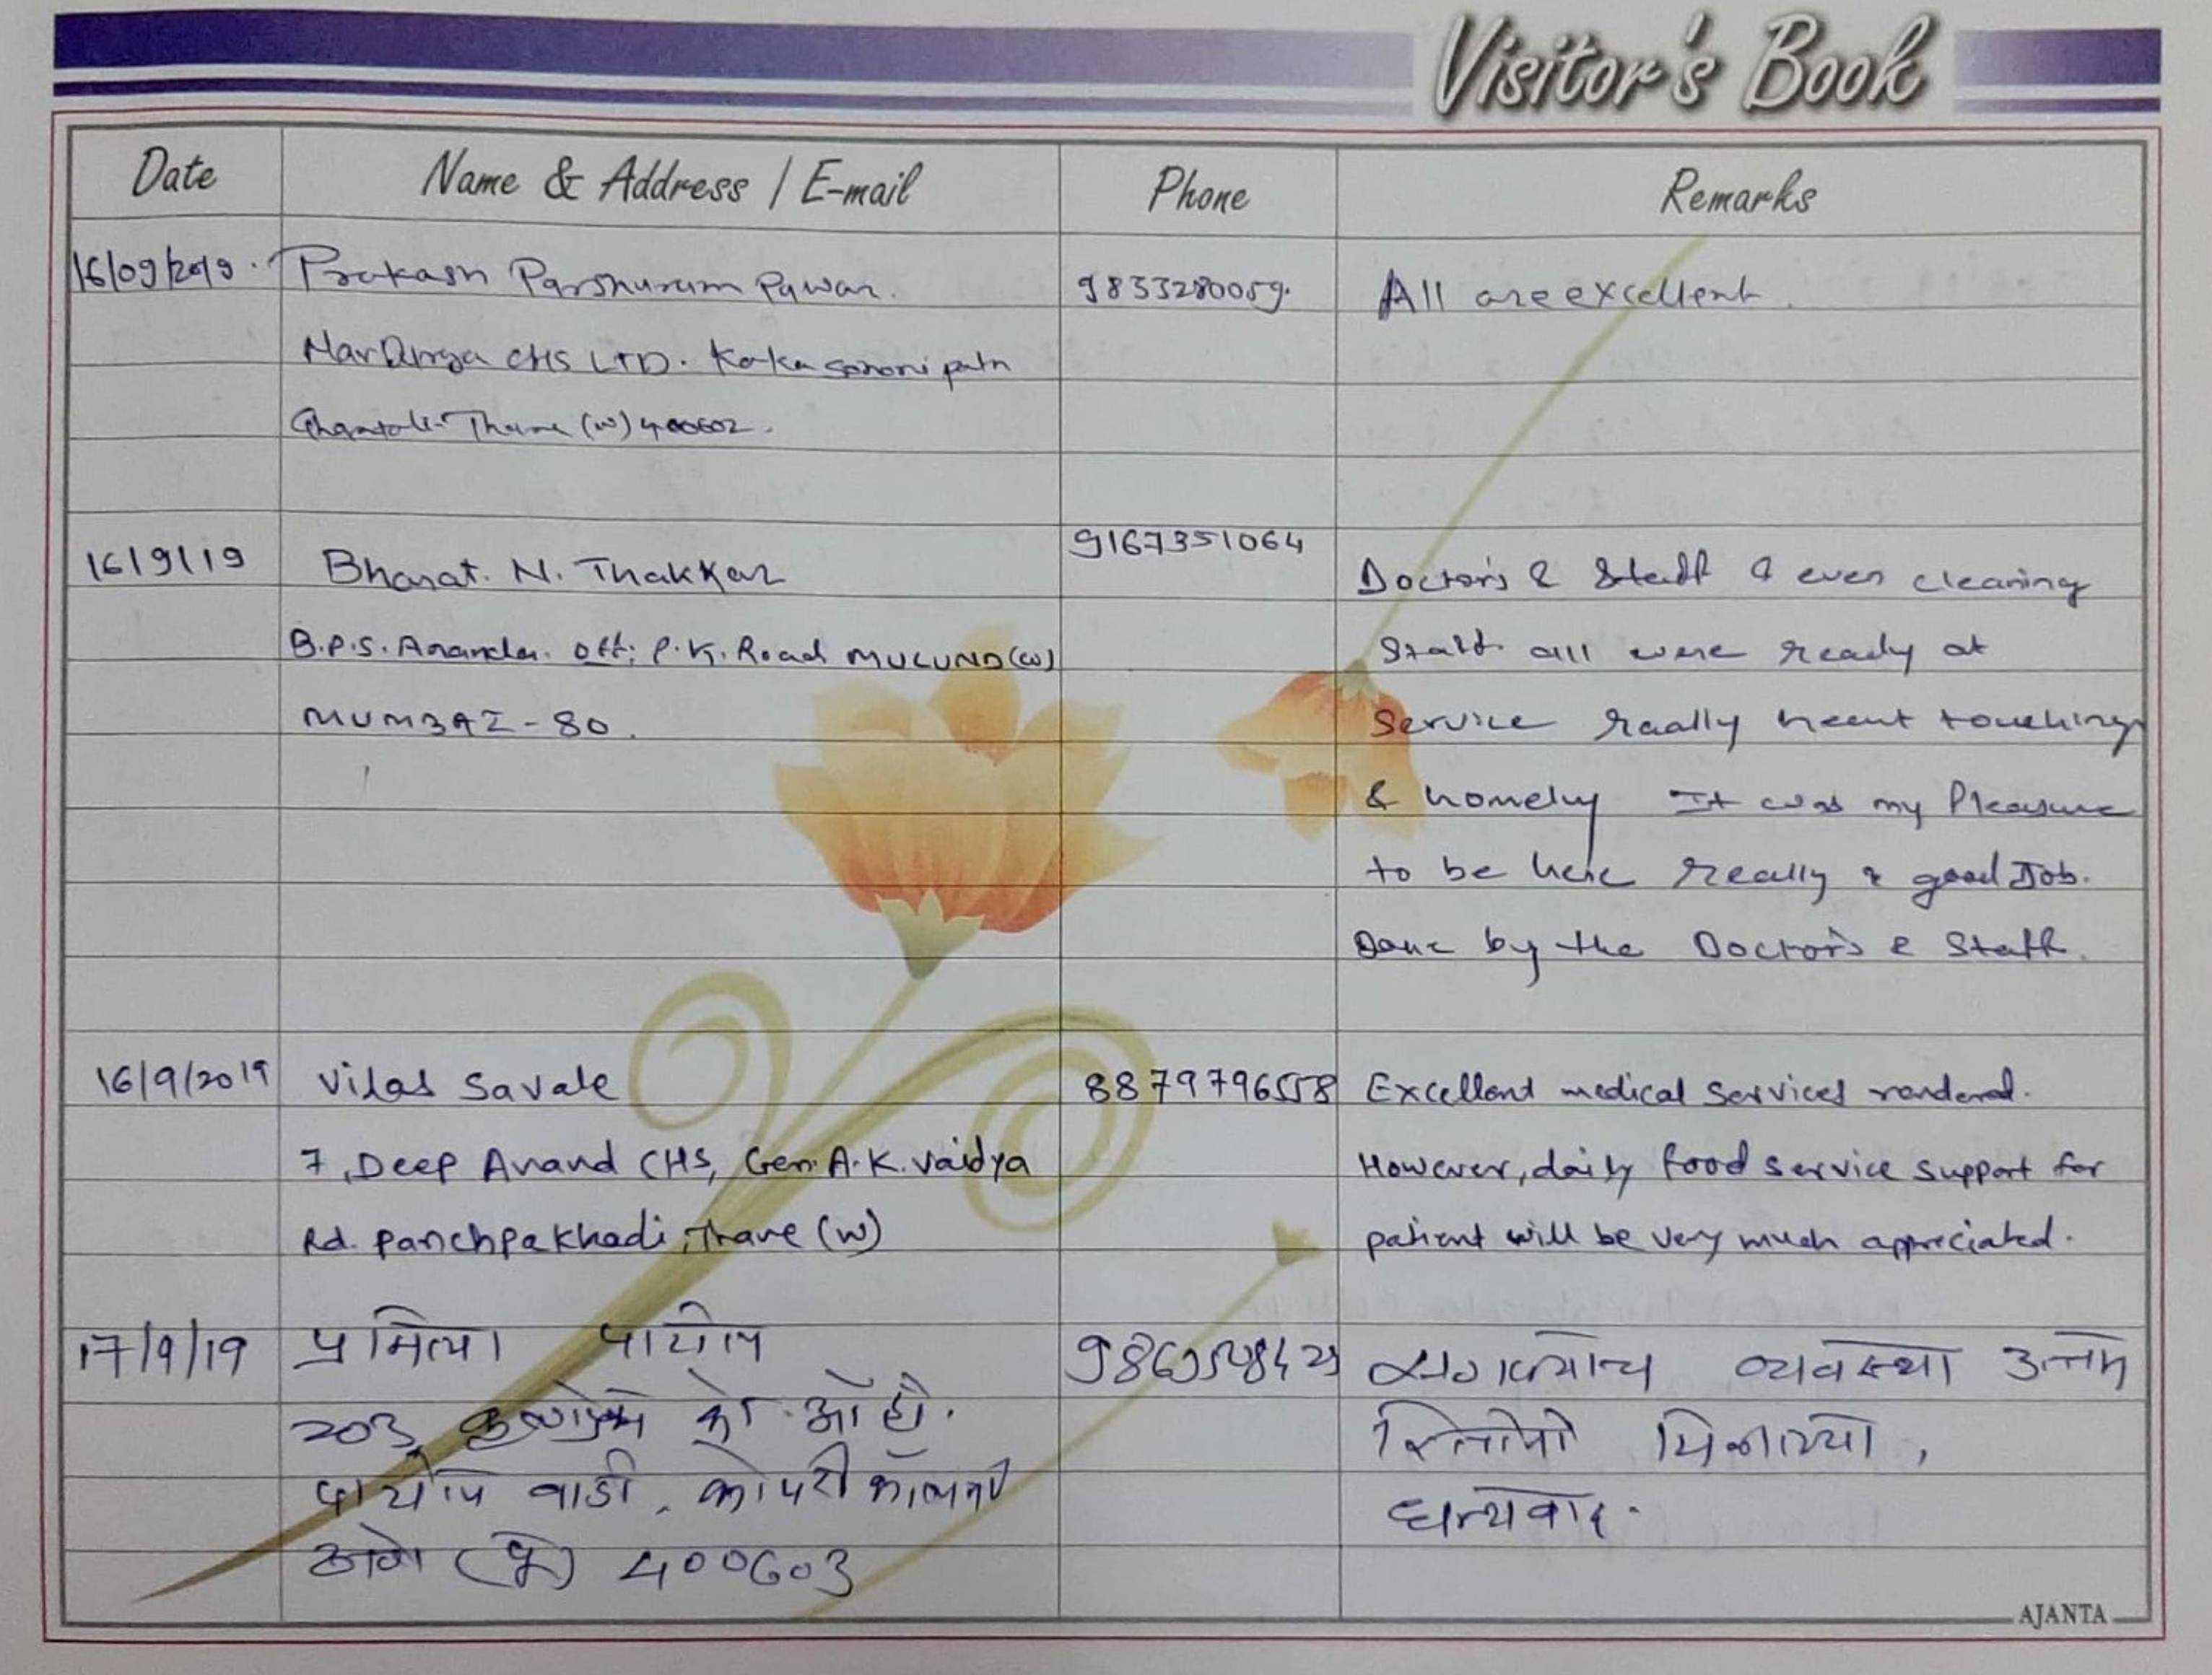 Visitor's Book
Date Name & Address / E-mail Phone Remarks
16/09/2019. Prakash Parshuram Pawar. 9833280059. All are excellent.
CHS LTD. Kaka path
Ghantali Thane (W) 400602.
16/9/19 Bharat. N. Thakkar 9167351064
Doctor's & Staff & even cleaning
B.P.S. off; P.K. Road MULUND (W) Staff. all were ready at
MUMBAI-80. Service raally heart touching
& homely It was my Pleasure
to be here really a good Job.
Done by the Doctor's & Staff.
16/9/2019 Vilas Savale 8879796558 Excellent medical services rendered.
7, Deep Anand CHS, Gen. A.K. Vaidya However, daily food service support for
Rd. Panchpakhadi, Thane (W) patient will be very much appreciated.
17/9/19 प्रमिला पाटील व्यवस्था उत्तम
203, को. ऑ. हौ. मिळाल्या,
पाटील वाडी, कोपरी कॉलनी धन्यवाद.
ठाणे (पू) 400603
AJANTA